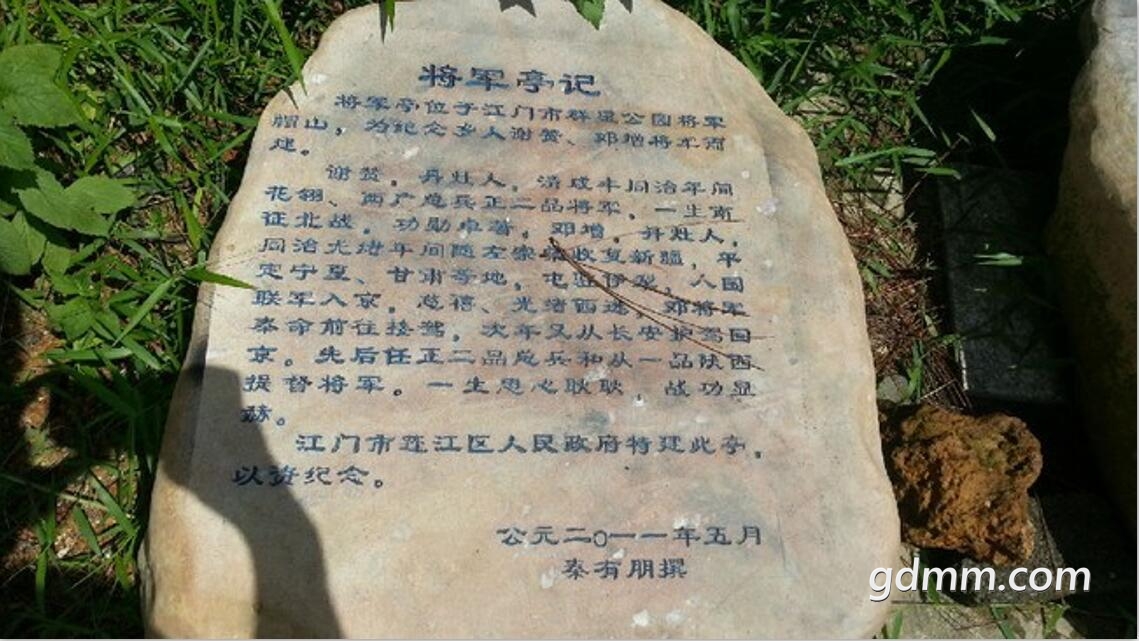 将军亭记
将军亭位于江门市群星公园将军
帽山，为纪念乡人谢赞、邓增将军而
建。
谢赞，丹灶人，清咸丰同治年间
花翎、两广总兵正二品将军，一生南
征北战，功勋卓著。邓增，丹灶人，
同治光绪年间随左宗棠收复新疆，平
定宁夏、甘肃等地，屯驻伊犁，八国
联军入京，慈禧、光绪西逃，邓将军
奉命前往接驾，次年又从长安护驾回
京。先后任正二品总兵和从一品陕西
提督将军。一生忠心耿耿，战功显
赫。
江门市蓬江区人民政府特建此亭，
以资纪念。
公元二〇一一年五月
秦有朋撰
gdmm.com